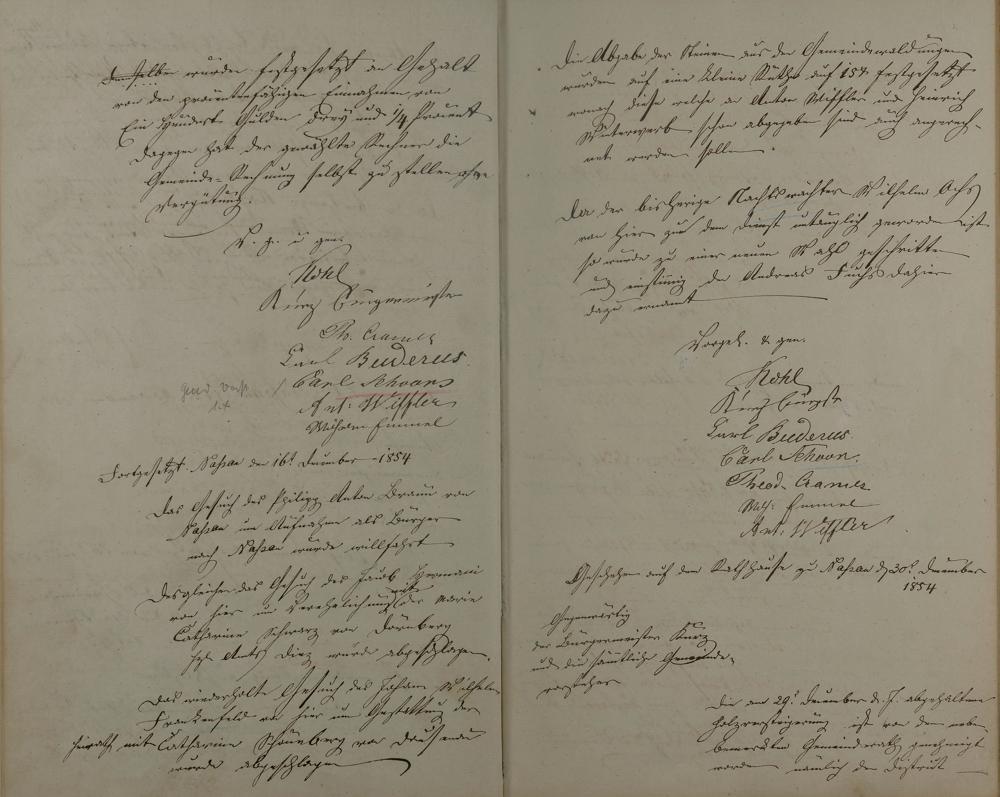 demselben wurde festgesetzt an Gehalt
von den proventenfähigen Einnahmen von
Ein Hundert Gulden Drey und 1/4 Prozent
dagegen hat der gewählte Rechner die
Gemeinde-Rechnung selbst zu stellen ohne
Vergütung.
V. g. u gen.
Kohl
Kurz Bürgermeister
Th. Cramer
Carl Buderus.
Carl Schoon
Ant: Wiffler
Wilhelm Emmel
Fortgesetzt Nassau den 16t. Dezember 1854
Das Gesuch des Philipp Anton Braun von
Nassau um Aufnahme als Bürger
nach Nassau wurde willfahrt
Desgleichen das Gesuch des Jacob Hermani
von hier um Verehelichung mit der Marie
Catharine Schwarz von Dörnberg
Hzl. Amts Diez wurde abgeschlagen.
Das wiederholte Gesuch des Johann Wilhelm
Frankenfeld von hier um Gestattung der
Heirath mit Catharine Schönberg von Dausenau
wurde abgeschlagen
Die Abgabe der Steine aus den Gemeindewaldungen
wurde auf eine kleine Ruthe auf 15x festgesetzt
wonach diese welche an Anton Wiffler und Heinrich
schon abgegeben sind auch angerech-
net werden sollen.
Da der bisherige Nachtswächter Wilhelm Ochs
von hier zu dem Dienst untauglich geworden ist
so wurde zu einer neuen Wahl geschritten
und einstimmig der Andreas Fuchs dahier
dazu ernannt
Vorgel. & gen.
Kohl
Kurz Bürgstr
Carl Buderus.
Carl Schoon.
Theod. Cramer
Wilh: Emmel
Ant: Wiffler
Geschehen auf dem Rathhause zu Nassau d 30t. Dezember
1854
Gegenwärtig
der Bürgermeister Kurz
und die sämtliche Gemeinde-
vorsteher
Die am 29t. Dezember d. J. abgehaltene
Holzversteigerung ist von dem neben
bemerkten Gemeinderath genehmigt
worden nämlich der District